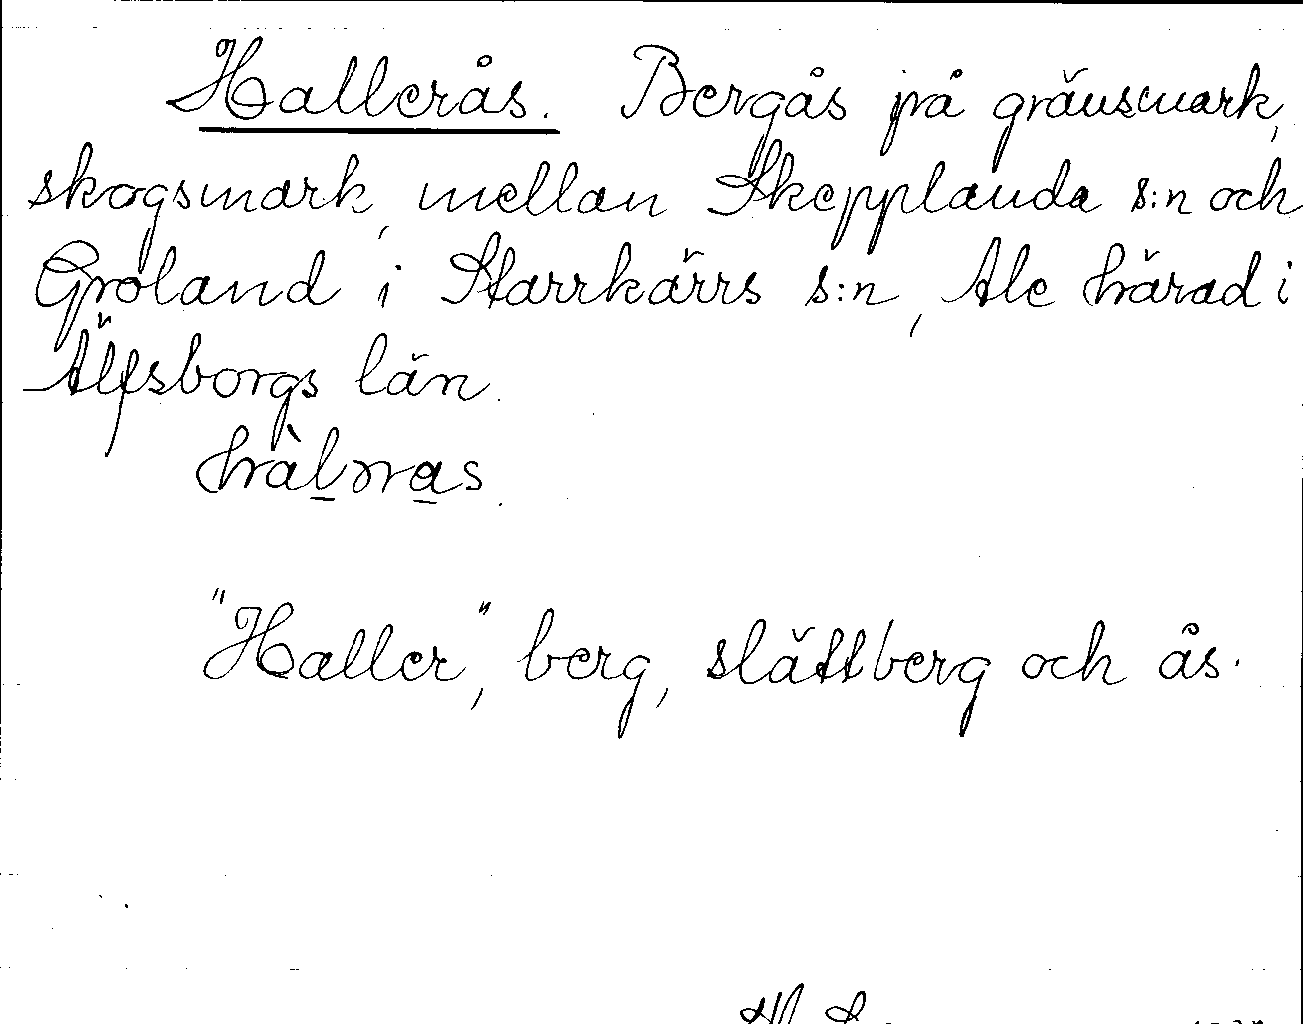 Hallerås. Bergås på gränsmark,
skogsmark, mellan Skepplanda s:n och
Groland i Starrkärrs s:n, Ale härad i
Älfsborgs län.
"Haller", berg, slättberg och ås.